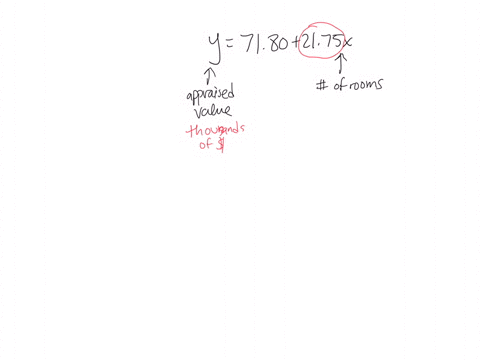 y = 71.80 + 21.75x
appraised
value
thousands
of $
# of rooms